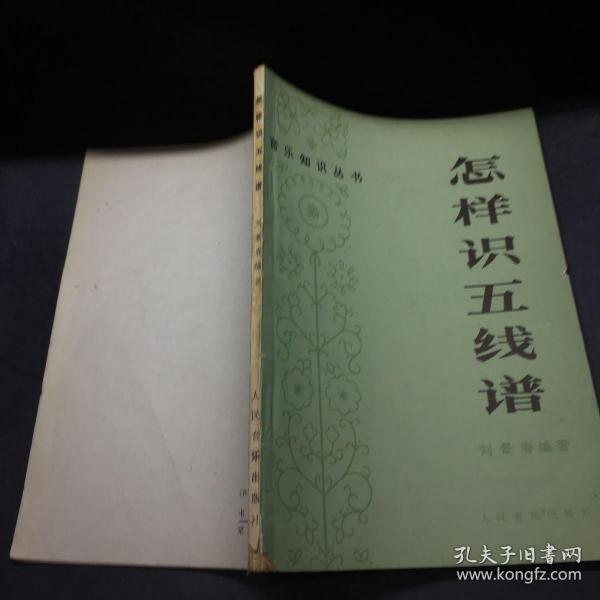 音乐知识丛书
怎样识五线谱
刘景春编著
人民音乐出版社
怎样识五线谱
人民音乐出版社
孔夫子旧书网
www.kongfz.com